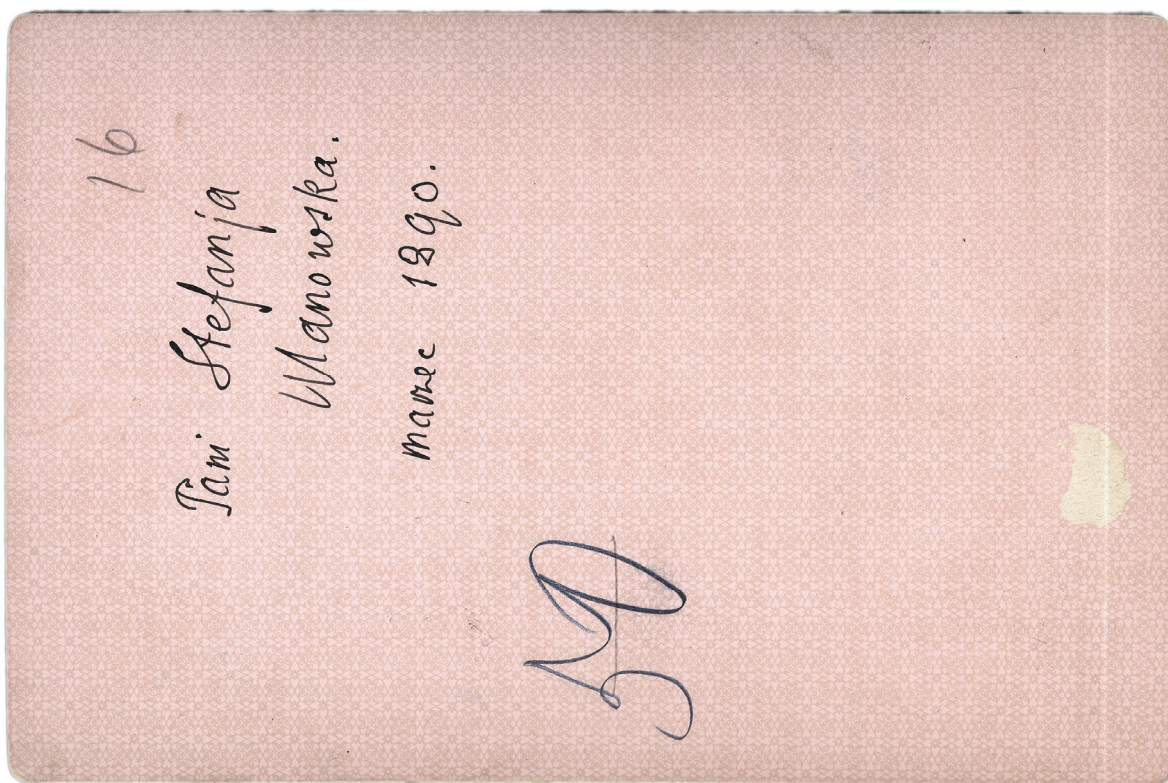 16
Pani Stefanja
Ulanowska.
marzec 1890.